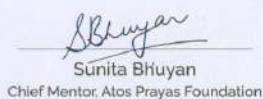 SBhuyan
Sunita Bhuyan
Chief Mentor, Atos Prayas Foundation